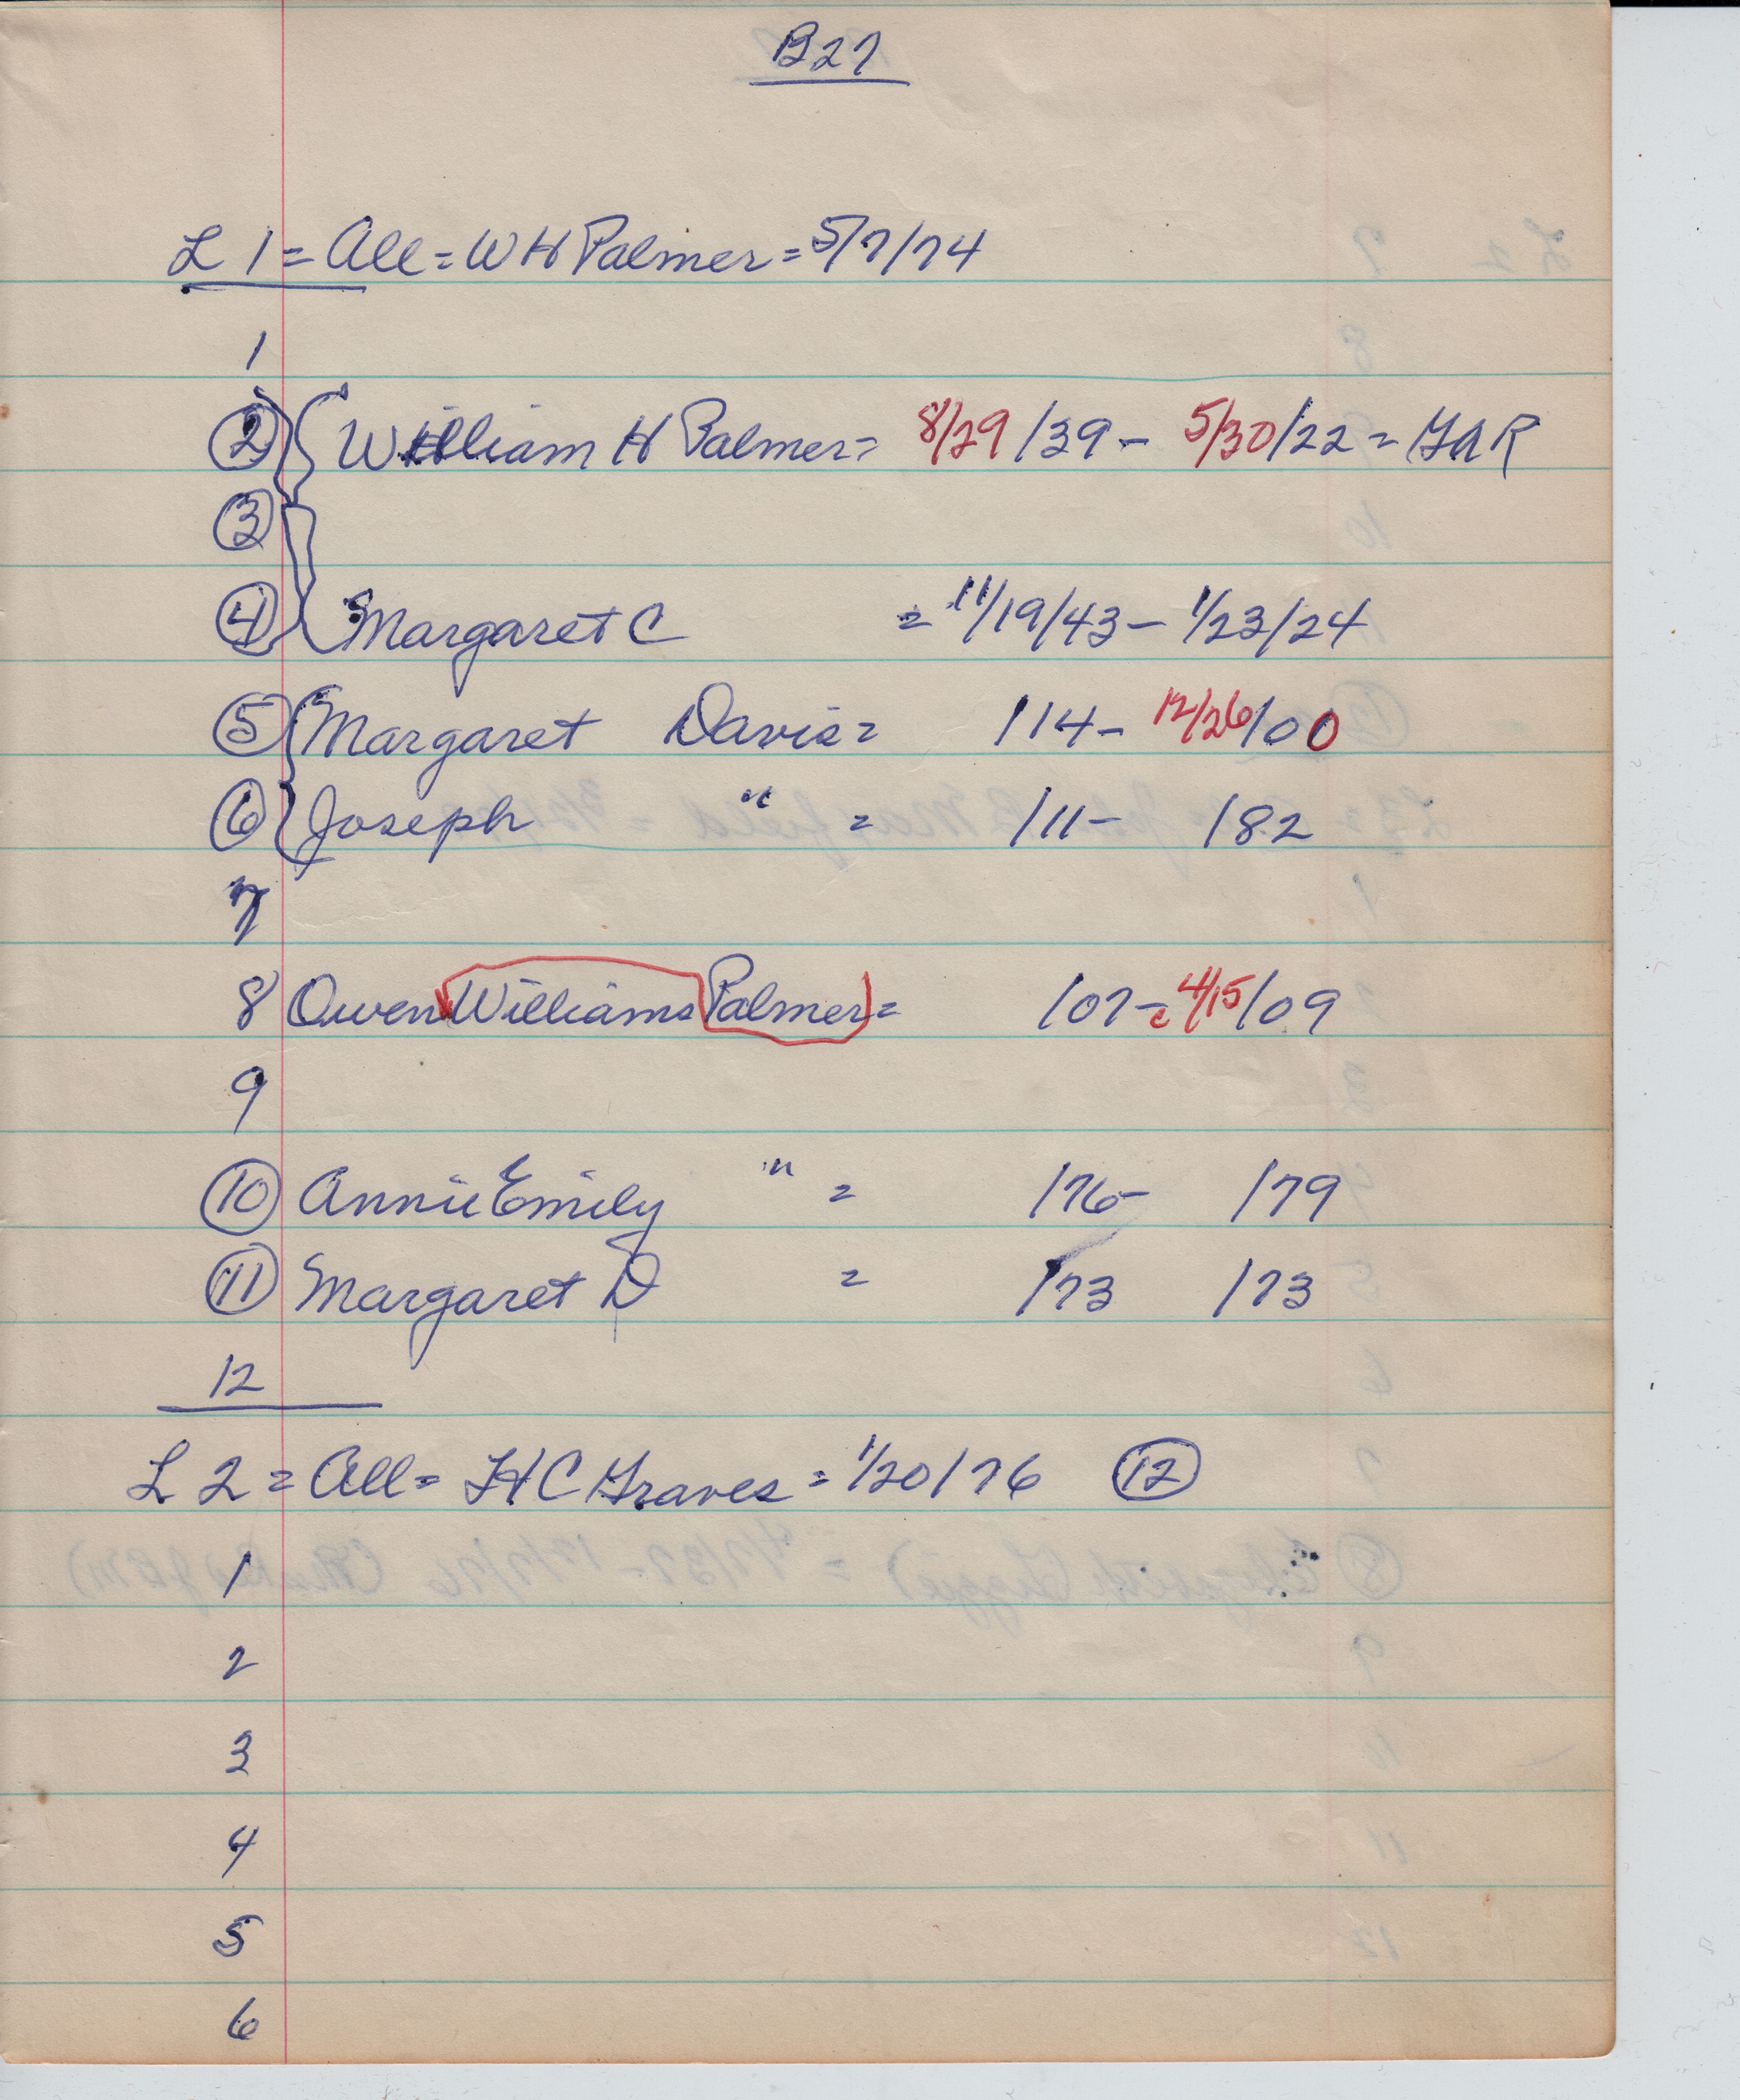 B27
L 1 = All = W H Palmer = 5/7/74
1
2 William H Palmer = 8/29/39 - 5/30/22 = GAR
3
4 Margaret C = 11/19/43 - 1/23/24
5 Margaret Davis = /14 - 12/26/00
6 Joseph " = /11 - /82
7
8 Owen Williams Palmer = /07 - c 4/15/09
9
10 Annie Emily " = /76 - /79
11 Margaret D = /73 /73
12
L 2 = All = H C Graves = 1/20/76 12
1
2
3
4
5
6